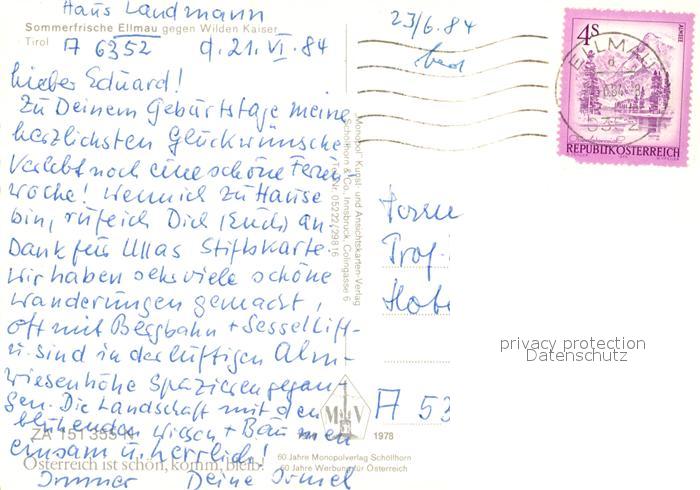 Haus Landmann
Sommerfrische Ellmau gegen Wilden Kaiser
Tirol A 6352 d. 21. VI. 84
Lieber Eduard!
Zu Deinem Geburtstage meine
herzlichsten Glückwünsche
Verlebt noch eine schöne Ferien-
woche! Wenn ich zu Hause
bin, rufe ich Dich (Euch) an
Dank für Ullas Stiftskarte.
Wir haben sehr viele schöne
Wanderungen gemacht,
oft mit Bergbahn + Sessellift-
u. sind in der luftigen Alm-
wiesenhöhe spazierengegan-
gen. Die Landschaft mit den
blühenden Wiesen + Bäumen
einsam u. herrlich!
Immer Deine
ZA 151 355 N
Österreich ist schön, komm, bleib!
"Monopol" Kunst- und Ansichtskarten-Verlag
Schöllhorn & Co., Innsbruck, Colingasse 6
Tel.-Nr. 05222/29816
MV
1978
60 Jahre Monopolverlag Schöllhorn
60 Jahre Werbung für Österreich
23/6. 84
4S
REPUBLIK ÖSTERREICH
ELLMAU
6352
Prof.
A 53
privacy protection
Datenschutz